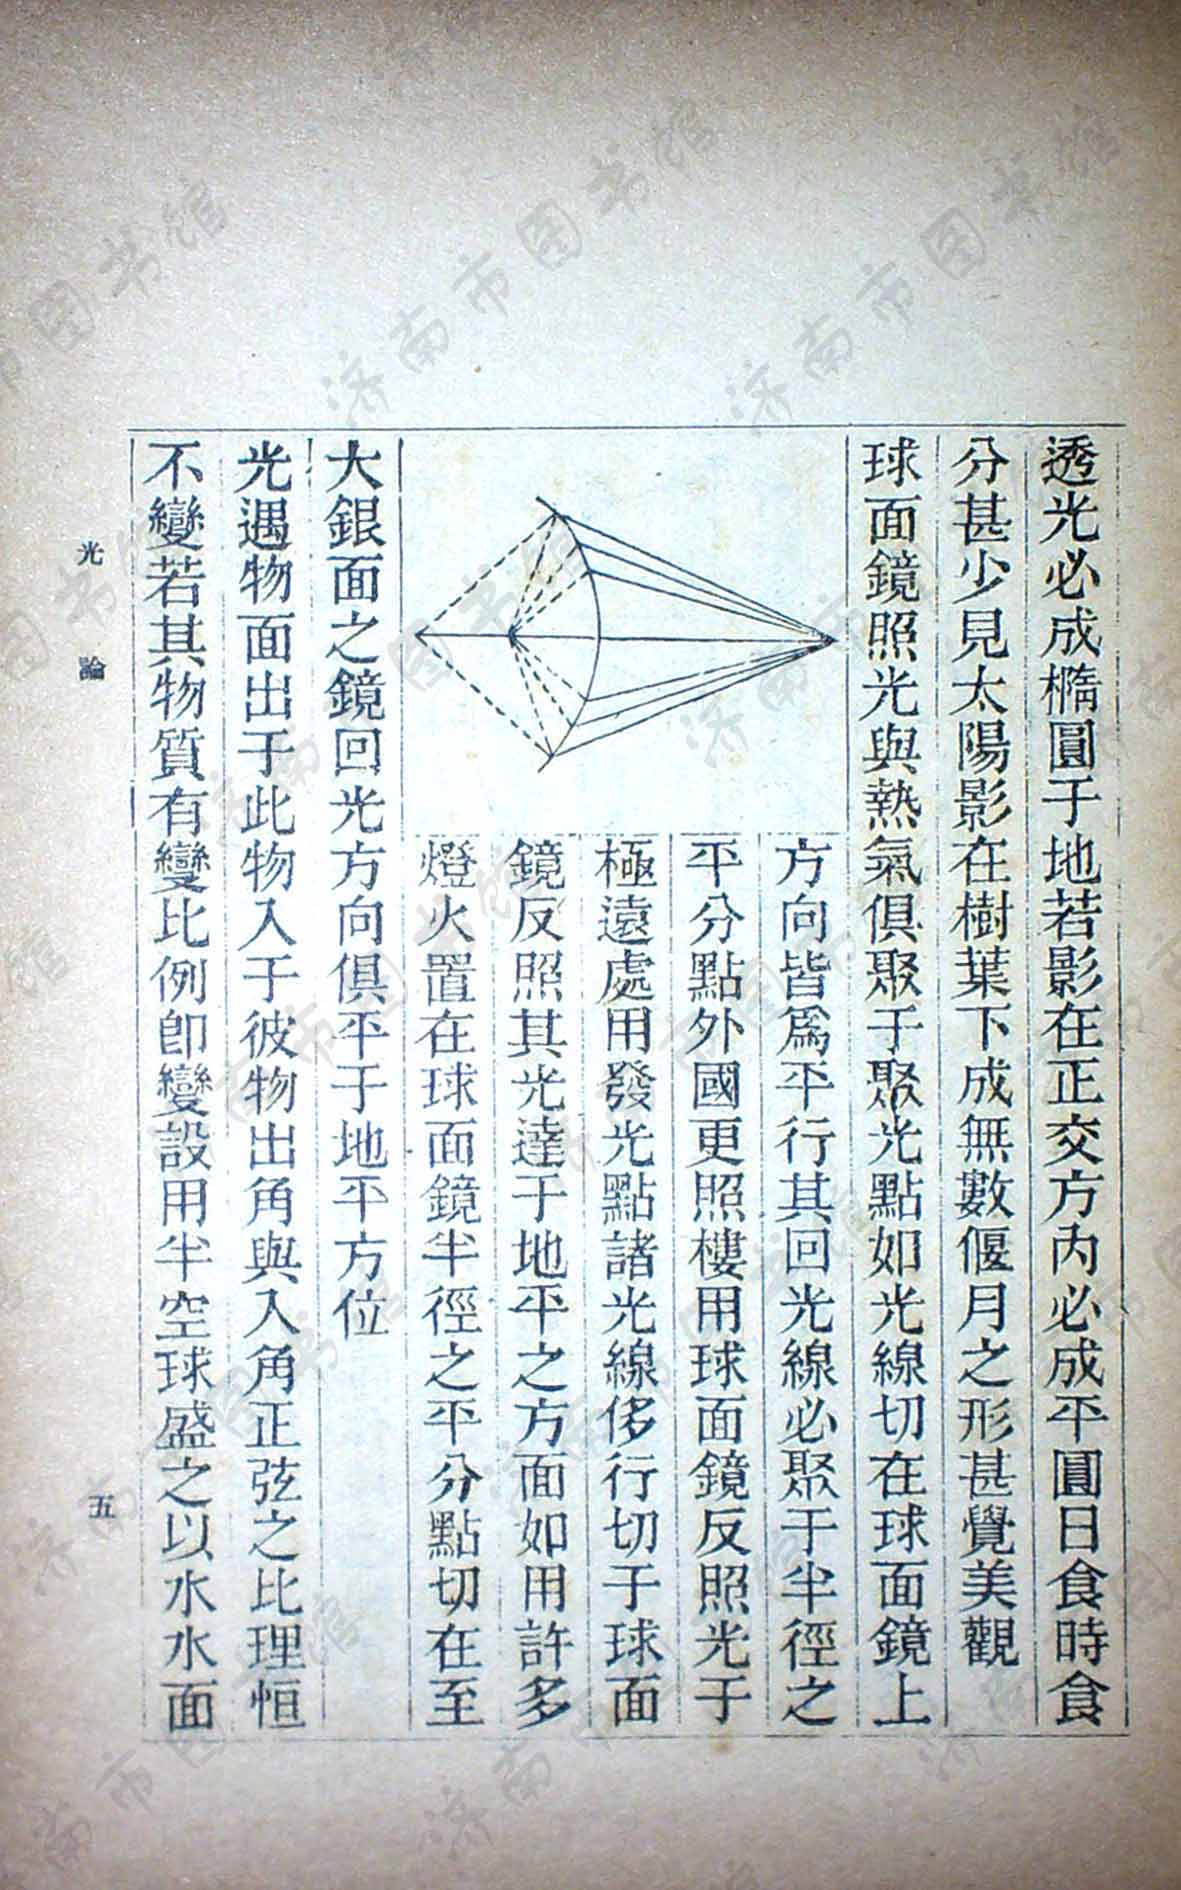 透光必成橢圓于地若影在正交方內必成平圓日食時食
分甚少見太陽影在樹葉下成無數偃月之形甚覺美觀
球面鏡照光與熱氣俱聚于聚光點如光線切在球面鏡上
方向皆爲平行其回光線必聚于半徑之
平分點外國更照樓用球面鏡反照光于
極遠處用發光點諸光線侈行切于球面
鏡反照其光達于地平之方面如用許多
燈火置在球面鏡半徑之平分點切在至
大銀面之鏡回光方向俱平于地平方位
光遇物面出于此物入于彼物出角與入角正弦之比理恒
不變若其物質有變比例卽變設用半空球盛之以水水面
光論
五
济南市图书馆